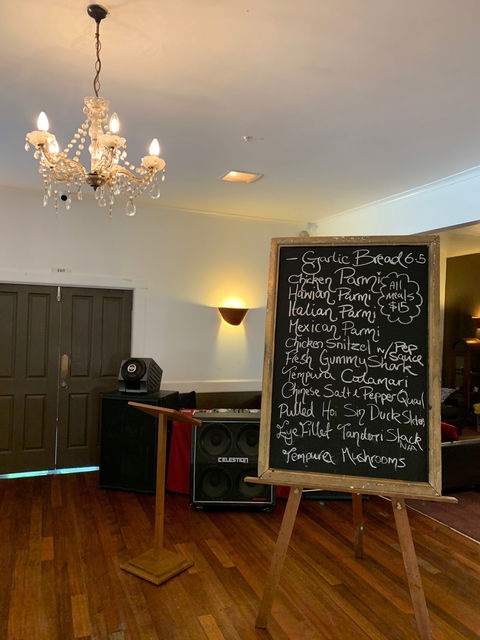 EXIT
- Garlic Bread 6.5
Chicken Parmi
Hawiian Parmi
Italian Parmi
Mexican Parmi
All
meals
$15
Chicken Snitzel w/ Pep Sauce
Fresh Gummy Shark
Tempura Calamari
Chinese Salt & Pepper Quail
Pulled Hoi Sin Duck
Eye Fillet Tandori Stack
N/A
Tempura Mushrooms
CELESTION